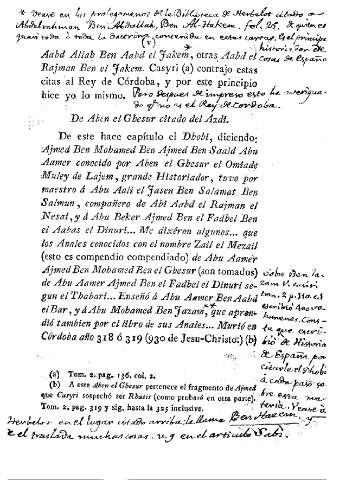 * Vease en los prolegomenos de la Biblioteca de Herbelot citado
Abdalrahman Ben Abdallah, Ben Al-Hakem. fol. 25.
(v)
Aabd Allah Ben Aabd el Jakem*, otras Aabd el
Rajman Ben el Jakem. Casyri (a) contrajo estas
citas al Rey de Córdoba, y por este principio
hice yo lo mismo. Pero despues de impreso esto he averigua-
do qe no es el Rey de Cordoba.
historiador de
cosas de España
De Aben el Ghesur citado del Azdi.
De este hace capítulo el Dhobi, diciendo:
Ajmed Ben Mohamed Ben Ajmed Ben Saald Abu
Aamer conocido por Aben el Ghesur el Omiade
Muley de Lajem, grande Historiador, tuvo por
maestro á Abu Aali el Jasen Ben Salamat Ben
Salmun, compañero de Abi Aabd el Rajman el
Nesai, y á Abu Beker Ajmed Ben el Fadhel Ben
el Aabas el Dinuri... Me dixéron algunos... que
los Anales conocidos con el nombre Zail el Mezail
(esto es compendio compendiado) de Abu Aamer
Ajmed Ben Mohamed Ben el Ghesur (son tomados)
de Abu Aamer Ajmed Ben el Fadhel el Dinuri se-
gun el Thabari... Enseñó á Abu Aamer Ben Aabd
el Bar, y á Abu Mohamed Ben Jazam*, que apren-
dió tambien por el libro de sus Anales... Murió en
Córdoba año 318 ó 319 (930 de Jesu-Christo:) (b)
tom. 2. p.
escribió 400 vo-
lumenes. Cons-
ta que escri-
bió de Historia
de España por
citarle el Dhobi
á cada paso so-
bre esta ma-
teria. Vease á
(a) Tom. 2. pag. 136. col. 2.
(b) A este Aben el Ghesur pertenece el fragmento de Ajmed
que Casyri sospechó ser Rhasis (como probaró en otra parte).
Tom. 2. pag. 319 y sig. hasta la 325 inclusive.
Herbelot en el lugar citado arriba: le llama Ben Hazem, y
le traslada muchas cosas. v.g en el articulo Sabi.